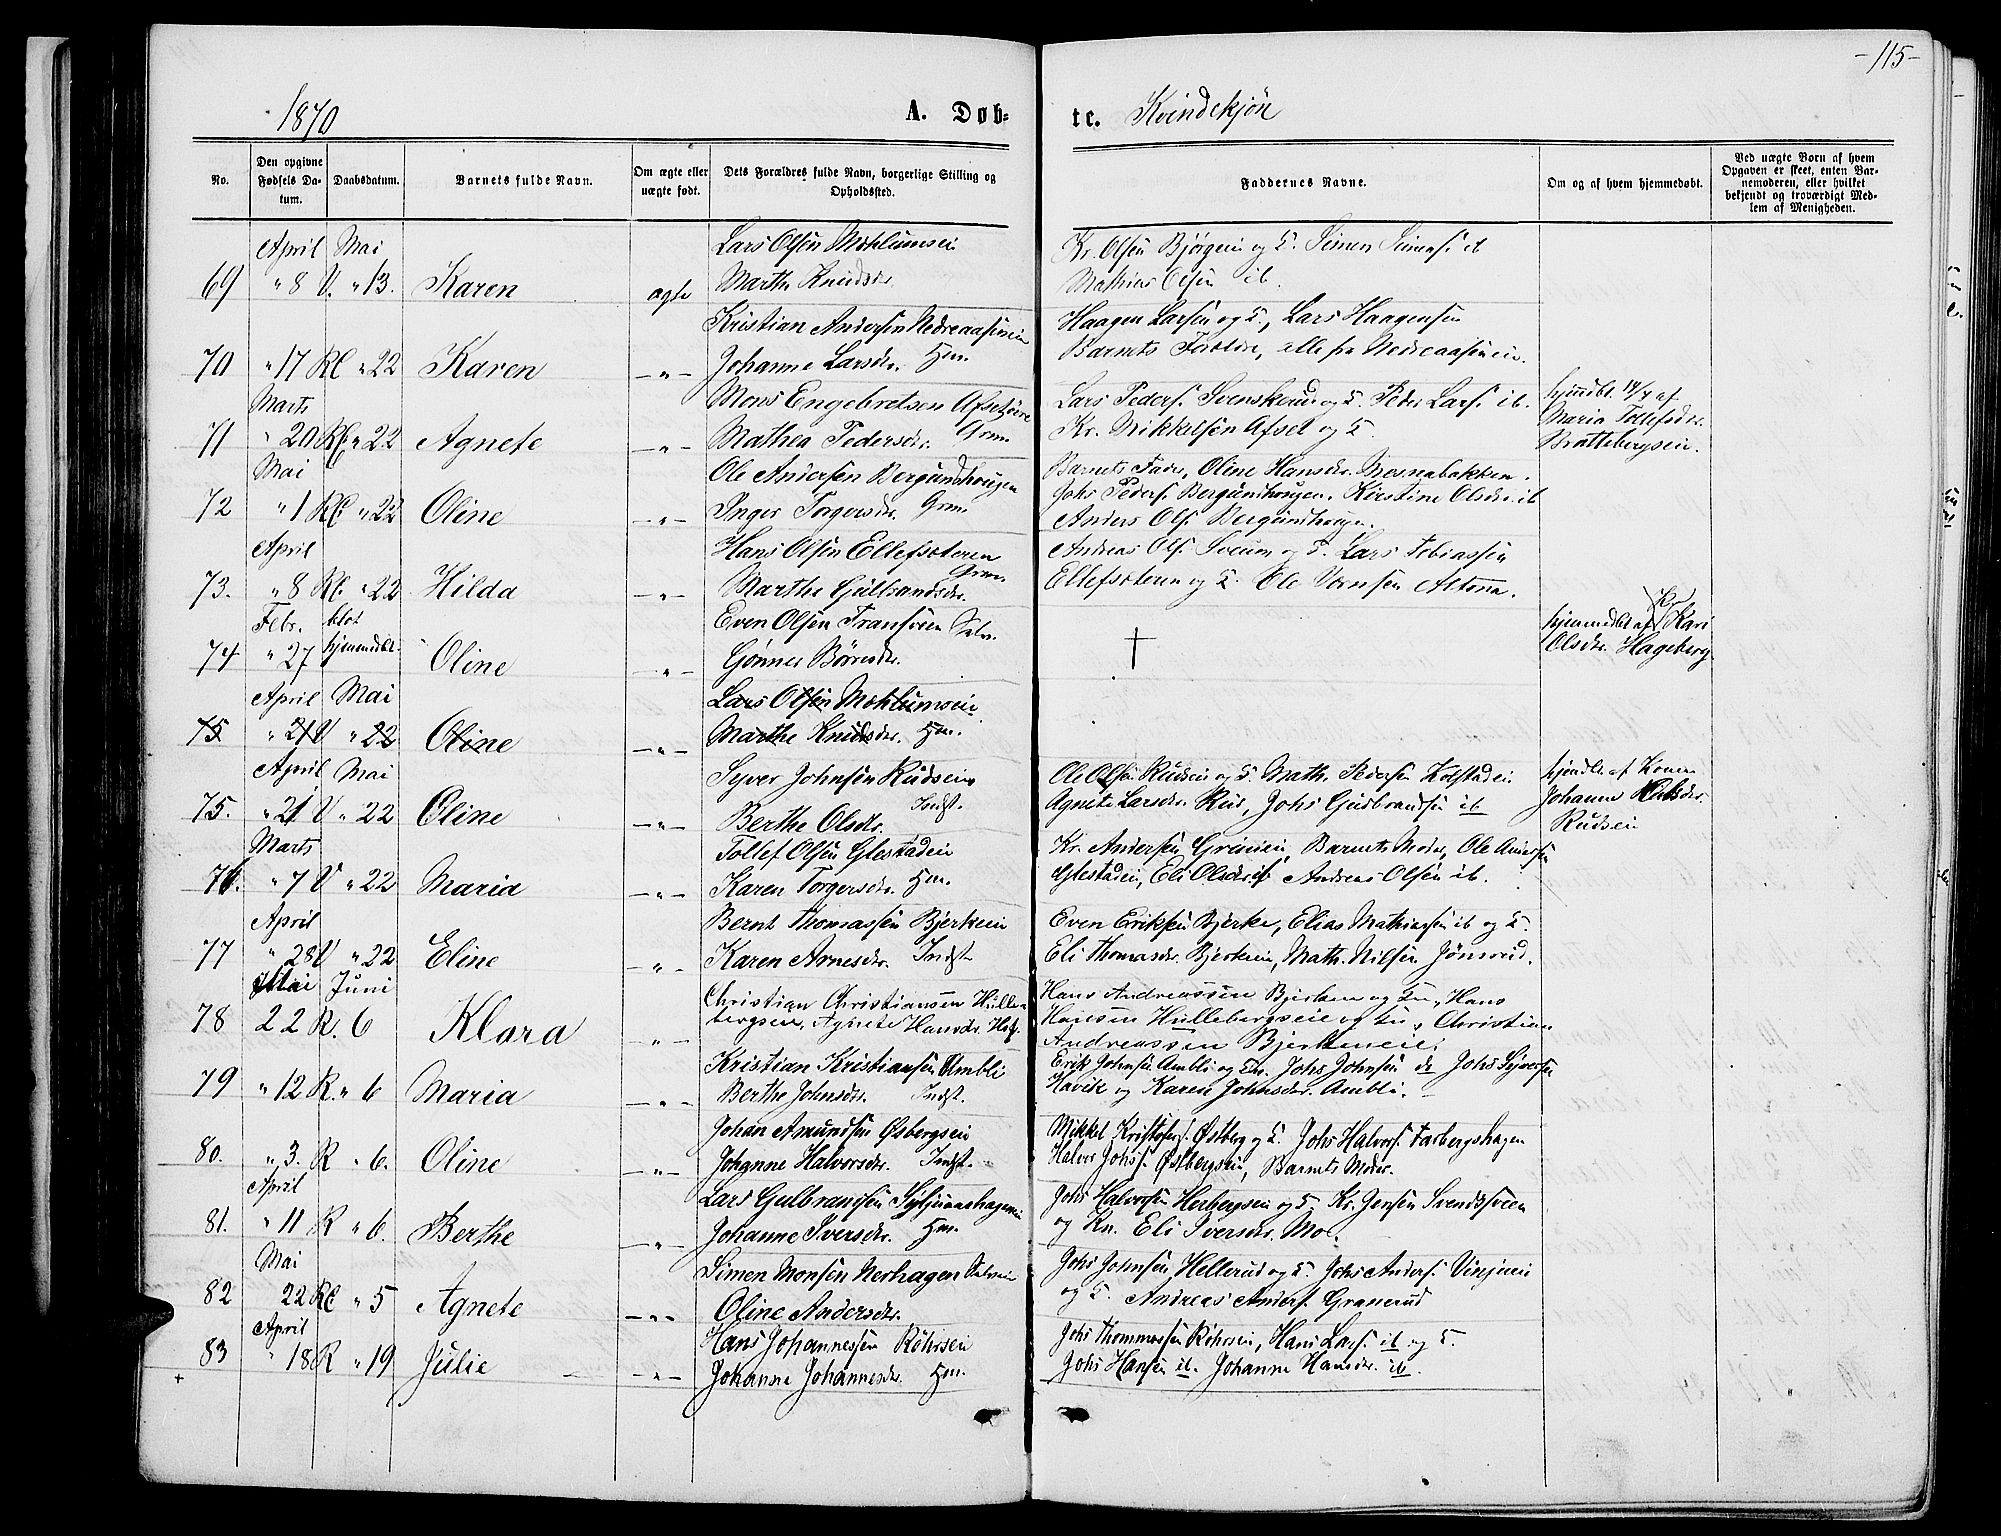 -115-
1870
A. Døb-
te. Kvindekjøn
No.
Den opgivne Fødsels Da-tum.
Daabsdatum.
Barnets fulde Navn.
Om ægte eller uægte født.
Dets Forældres fulde Navn, borgerlige Stilling og Opholdssted.
Faddernes Navne.
Om og af hvem hjemmedøbt.
Ved uægte Børn af hvem Opgaven er skeet, enten Bar-nemoderen, eller hvilket bekjendt og troværdigt Med-lem af Menigheden.
April Mai Lars Olsen Mohlumseie Kr. Olsen og T. Simen Simens. ib
69 " 8 V. " 13. Karen ægte Marthe Knudsdr. Mathias Olsen ib.
Kristian Andersen Nedreaaseneie Haagen Larsen og T., Lars Haagensen
70 " 17 Kl " 22 Karen — " — Johanne Larsdr. Hm. Barnets Forældre, alle fra Nedreaaseneie.
Marts Mons Engebretsen Lars Peders. Svenskerud og T. Peder Lars. ib.
71 " 20 Kl. " 22 Agnete — " — Mathea Pedersdr. Grm. Kr. Mikkelsen Afset og T. Maria
Mai Ole Andersen Bergundhougen Barnets Fader, Oline Hansdr. Mesnabakken.
72 " 1 Kl. " 22 Oline — " — Inger Torgersdr. Grm. Johs Peders. Bergundhougen. Kirstine Olsdr. ib
Anders Ols. Bergundhougen.
April Hans Olsen Ellefsæteren Andreas Ols. Sveum og T. Lars Tobiassen
73. " 8 Kl. " 22 Hilda — " — Marthe Gulbrandsdr. Grm. Ellefsæteren og T. Ole
Febr. blot Even Olsen Transveen Selv. hjemmedbt af Kari
74 " 27 hjemmedbt. Oline — " — Gønner Børresdr. † Olsdr. Hageberg.
April Mai Lars Olsen Mohlumseie
75 " 21 V " 22 Oline — " — Marthe Knudsdr. Hm.
April Mai Syver Johnsen Rudseie Ole Olsen Rudseie og T. Math. Pedersen Kolstadeie hjmdbt. af Konen
75. " 21 V " 22 Oline — " — Berthe Olsdr. Indst. Agnete Larsdr. Rud, Johs Gudbrandsen ib Johanne
Rudseie
Marts Tollef Olsen Glestadeie Kr. Andersen Barnets Moder, Ole Andersen
76. " 7 V " 22 Maria — " — Karen Torgersdr. Hm. Glestadeie, Eli Olsdr. Andreas Olsen ib.
April Bernt Thomassen Bjerkeeie Even Eriksen Bjerke, Elias Mathiassen ib og T.
77 " 28 V " 22 Eline — " — Karen Arnesdr. Indst. Eli Thomasdr. Bjerkeeie, Math. Nilsen Jønsrud.
Mai Juni Christian Christiansen Hulle- Hans Andreassen Bjerken og Hans
78 22 R. 6 Klara — " — bergseie, Agnete Hansdr. Hansen Hullebergseie og Christian
Andreassen Bjerkeneie.
Kristian Kristiansen Ambli Erik Johnsen Ambli og Johs Johnsen Johs Syversen
79 " 12 R. " 6 Maria — " — Berthe Johnsdr. Indst. Havik og Karen Johnsdr. Ambli.
Johan Amundsen Østbergseie Mikkel Kristofers. Østberg og T. Johs Halvors. Farbergshagen
80. " 3. R " 6. Oline — " — Johanne Halvorsdr. Indst. Halvor Johs. Østbergseie, Barnets Moder.
April Lars Gulbrandsen Johs Halvorsen Herbergseie og T. Kr. Jensen Svendsveen
81. " 11 R " 6. Berthe — " — Johanne Iversdr. Hm. og Kn. Eli Iversdr. Moe.
Mai Simen Monsen Nerhagen Selveie Johs Johnsen Hellerud og T. Johs Anders.
82 22 Kl " 5 Agnete — " — Oline Andersdr. og T. Andreas Anders. Granerud
April Hans Johannessen Røhrseie Johs Thommassen Røhrseie, Hans Lars. ib og T.
83 " 18 R " 19 Julie — " — Johanne Johannesdr. Hm. Johs Hansen ib. Johanne Hansdr. ib.
+